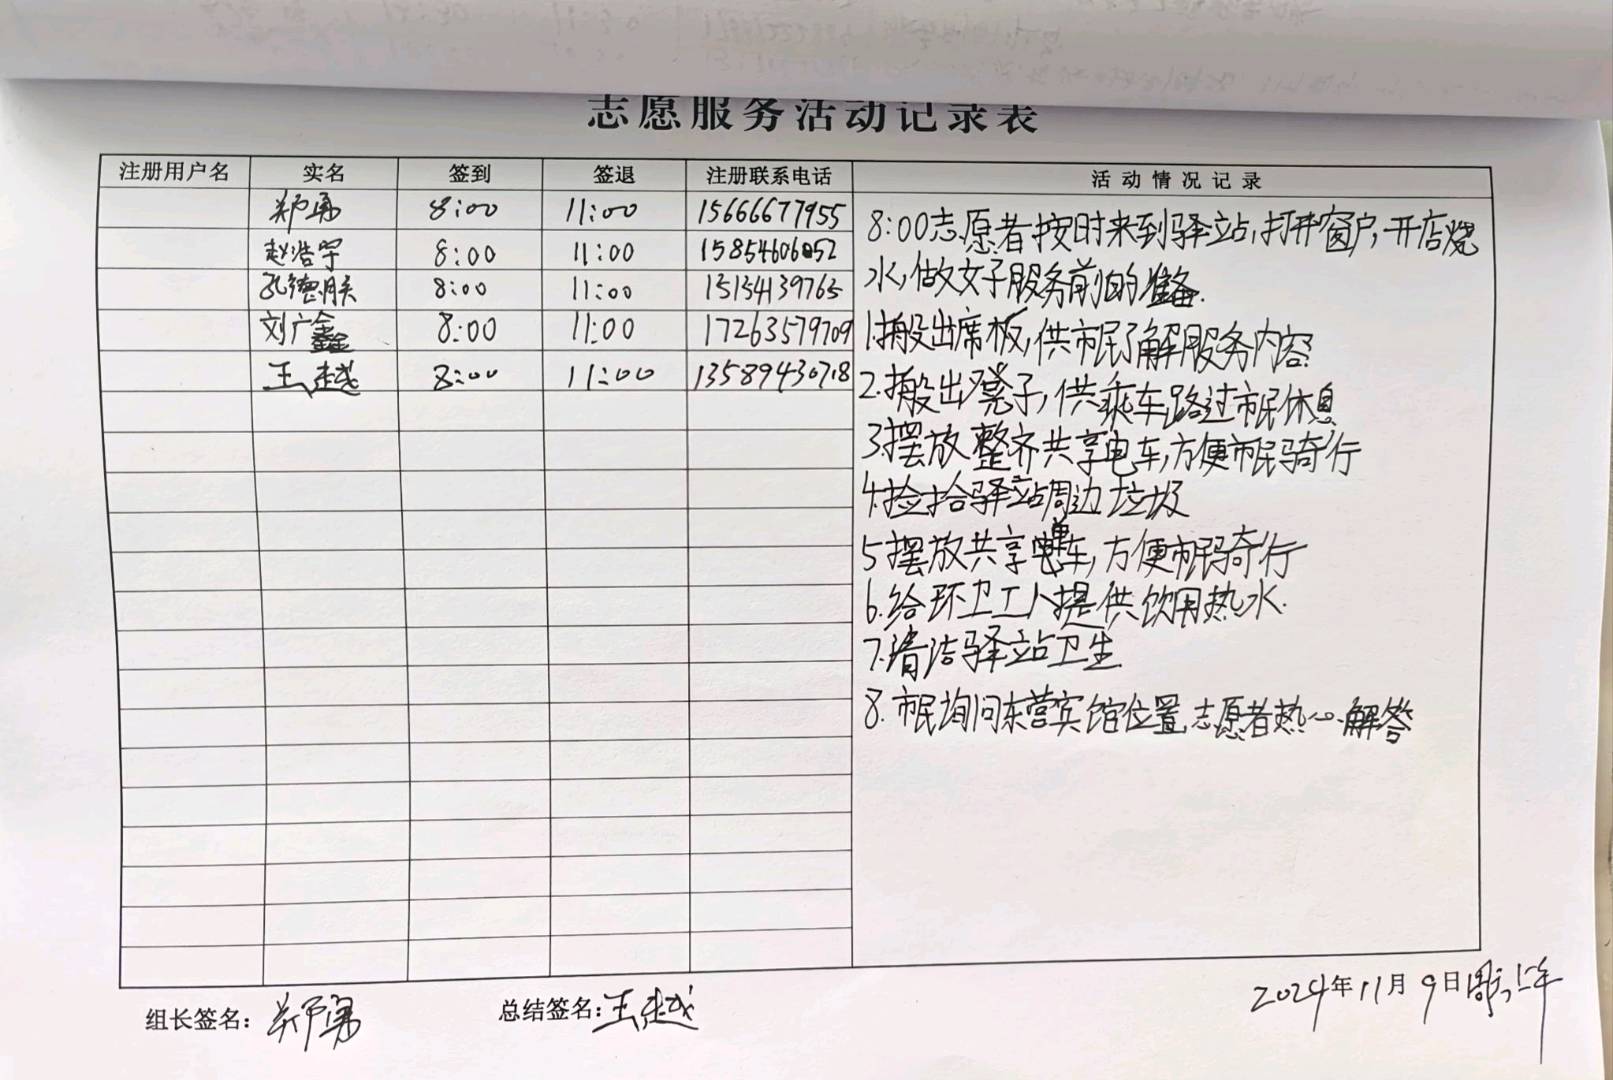 志愿服务活动记录表
注册用户名 实名 签到 签退 注册联系电话 活动情况记录
郑勇 8:00 11:00 15666677955
赵浩宇 8:00 11:00 15854606052
孔德朕 8:00 11:00 15154139765
刘广鑫 8:00 11:00 17263579709
王越 8:00 11:00 13589430718
8:00志愿者按时来到驿站,打开窗户,开店烧
水,做好服务前的准备.
1.搬出席板,供市民了解服务内容
2.搬出凳子,供乘车路过市民休息
3.摆放整齐共享电车,方便市民骑行
4.捡拾驿站周边垃圾
5.摆放共享单车,方便市民骑行
6.给环卫工人提供饮用热水.
7.清洁驿站卫生
8.市民询问东营宾馆位置,志愿者热心解答
组长签名:郑勇 总结签名:王越
2024年11月9日周六上午